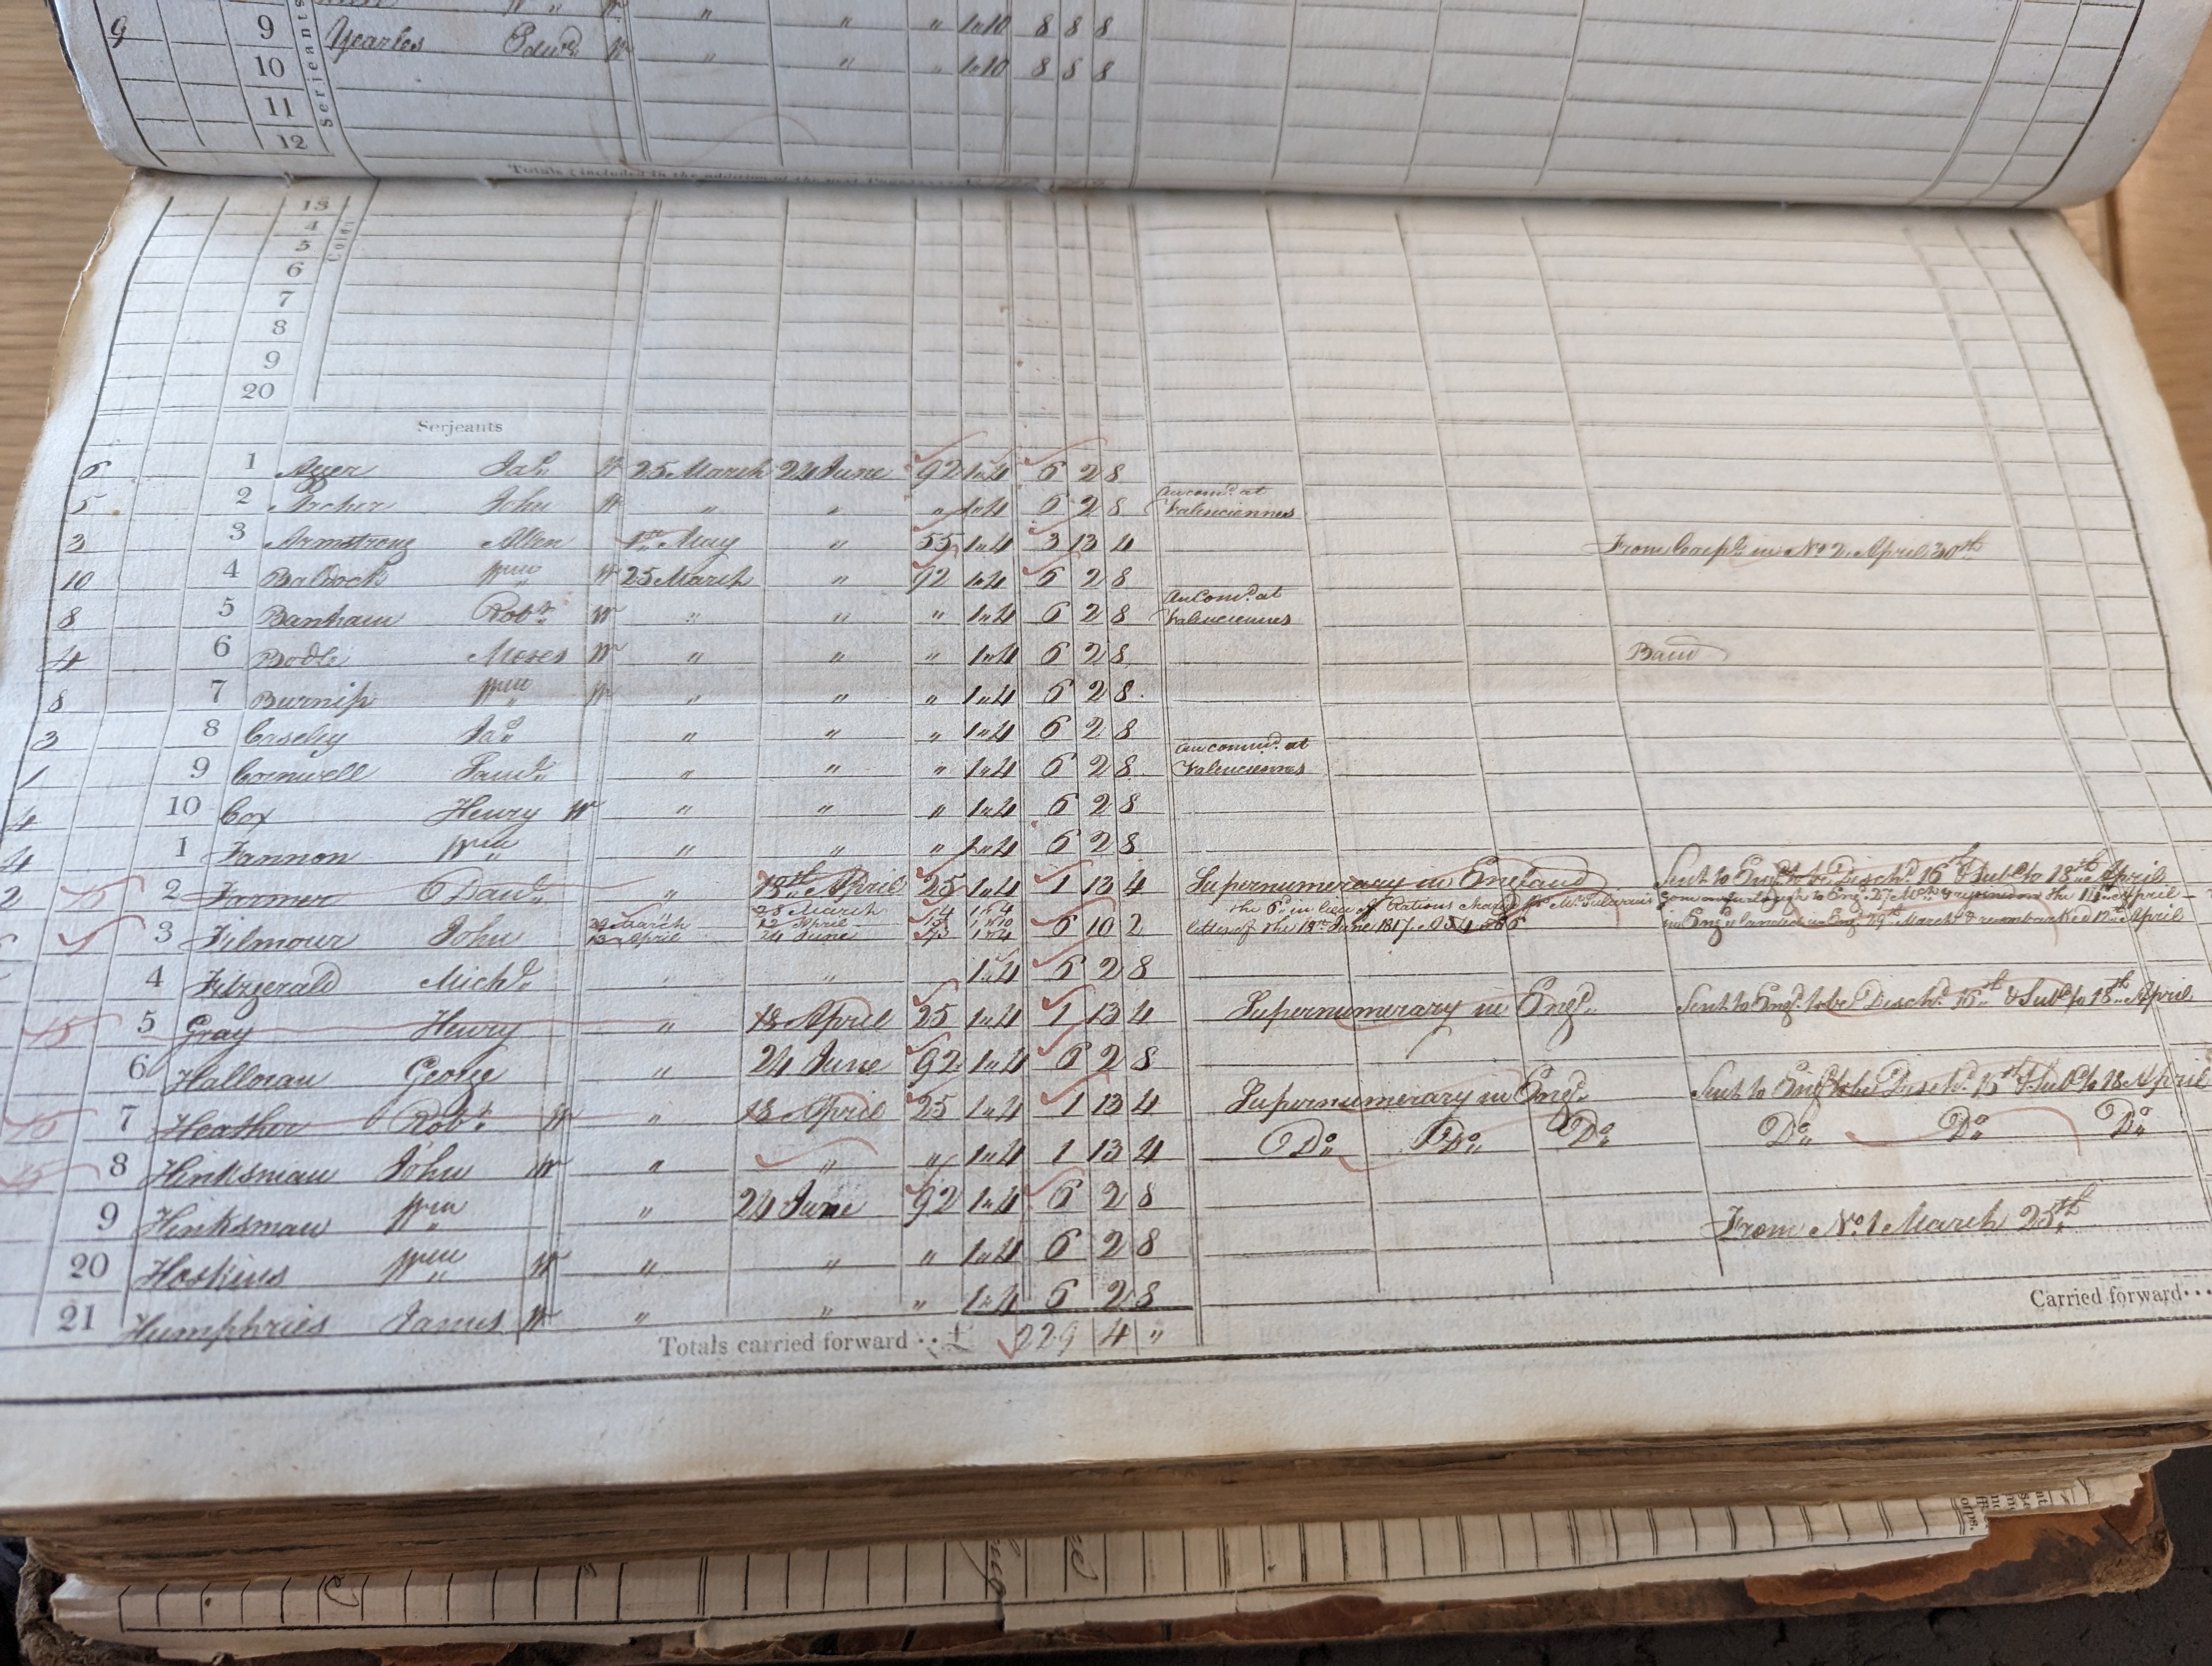 9 9 Yearles Edwd W " " " 1"10 8 8 8
10 " " " 1"10 8 8 8
11
12
Serjeants
Totals (included in the addition of the next
13
4
5
6
7
8
9
20
Serjeants
6 1 Ager Jas W 25 March 24 June 92 1"4 6 2 8
5 2 Archer John W " " " 1"4 6 2 8 On comd. at Valenciennes
3 3 Armstrong Allen 1st May " 55 1"4 3 13 4 From Corpls. in No 2. April 30th
10 4 Baldock Wm W 25 March " 92 1"4 6 2 8
8 5 Banham Robt. W " " " 1"4 6 2 8 On Comd. at Valenciennes
4 6 Bodle Moses W " " " 1"4 6 2 8 Band
8 7 Burnip Wm W " " " 1"4 6 2 8
3 8 Caseley Jas " " " 1"4 6 2 8
1 9 Cornwell Saml. " " " 1"4 6 2 8 On comd. at Valenciennes
4 10 Cox Henry W " " " 1"4 6 2 8
4 1 Fannon Wm " " " 1"4 6 2 8
2 15 2 Farmer Danl. " 18th April 25 1"4 1 13 4 Supernumerary in England Sent to Engd. to be Dischd. 15th & Subd. to 18th April
3 Filmour John 29 March 13 April 28 March 12 April 24 June 4 15 73 1"4 1"10 1"4 6 10 2 the 6d. in lieu of Rations charged pr letter of the 18th June 1817. in Engd. landed in Engd. 29th March & reembarked 12th April
4 Fitzgerald Michl. " " 1"4 6 2 8
15 5 Gray Henry " 18 April 25 1"4 1 13 4 Supernumerary in Engd. Sent to Engd. to be Dischd. 15th & Subd. to 18th April
6 Halloran George " 24 June 92 1"4 6 2 8
15 7 Heather Robt. W " 18 April 25 1"4 1 13 4 Supernumerary in Engd. Sent to Engd. to be Dischd. 15th & Subd. to 18 April
15 8 Hinksman John W " " " 1"4 1 13 4 Do. Do. Do. Do. Do. Do.
9 Hinksman Wm " 24 June 92 1"4 6 2 8
20 Hoskins Wm W " " " 1"4 6 2 8 From No. 1 March 25th
21 Humphries James W " " " 1"4 6 2 8
Totals carried forward .. £ 229 4 " Carried forward...